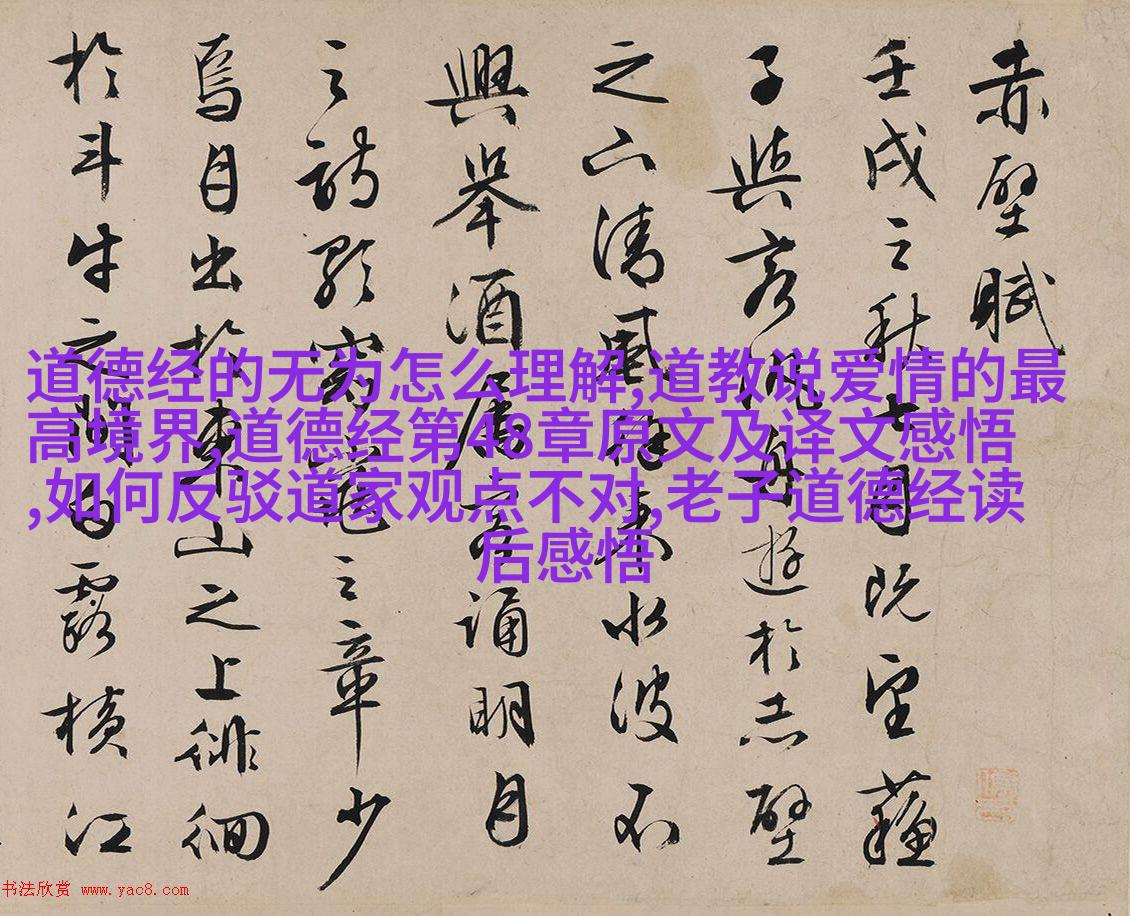 赤壁賦
壬戌之秋七月既望蘇
子與客泛舟遊於赤壁
之下清風徐來水波不
興舉酒屬客誦明月
之詩歌窈窕之章少
焉月出於東山之上徘徊
於斗牛之間白露橫江
道德经的无为怎么理解,道教说爱情的最
高境界,道德经第48章原文及译文感悟
,如何反驳道家观点不对,老子道德经读
后感悟
书法欣赏 www.yac8.com